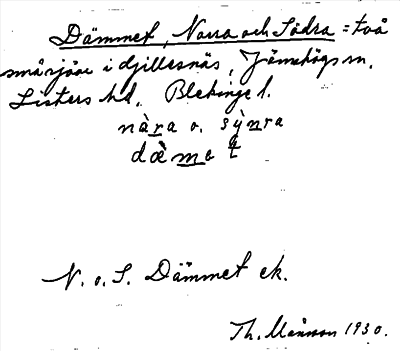 Dämmet, Norra och Södra = två
småsjöar i Gillesnäs, Jämshögs sn.
Listers hd. Blekinge l.
nàra o. sỳnra
dæ̀mət
N. o. S. Dämmet ek.
Th. Månsson 1930.